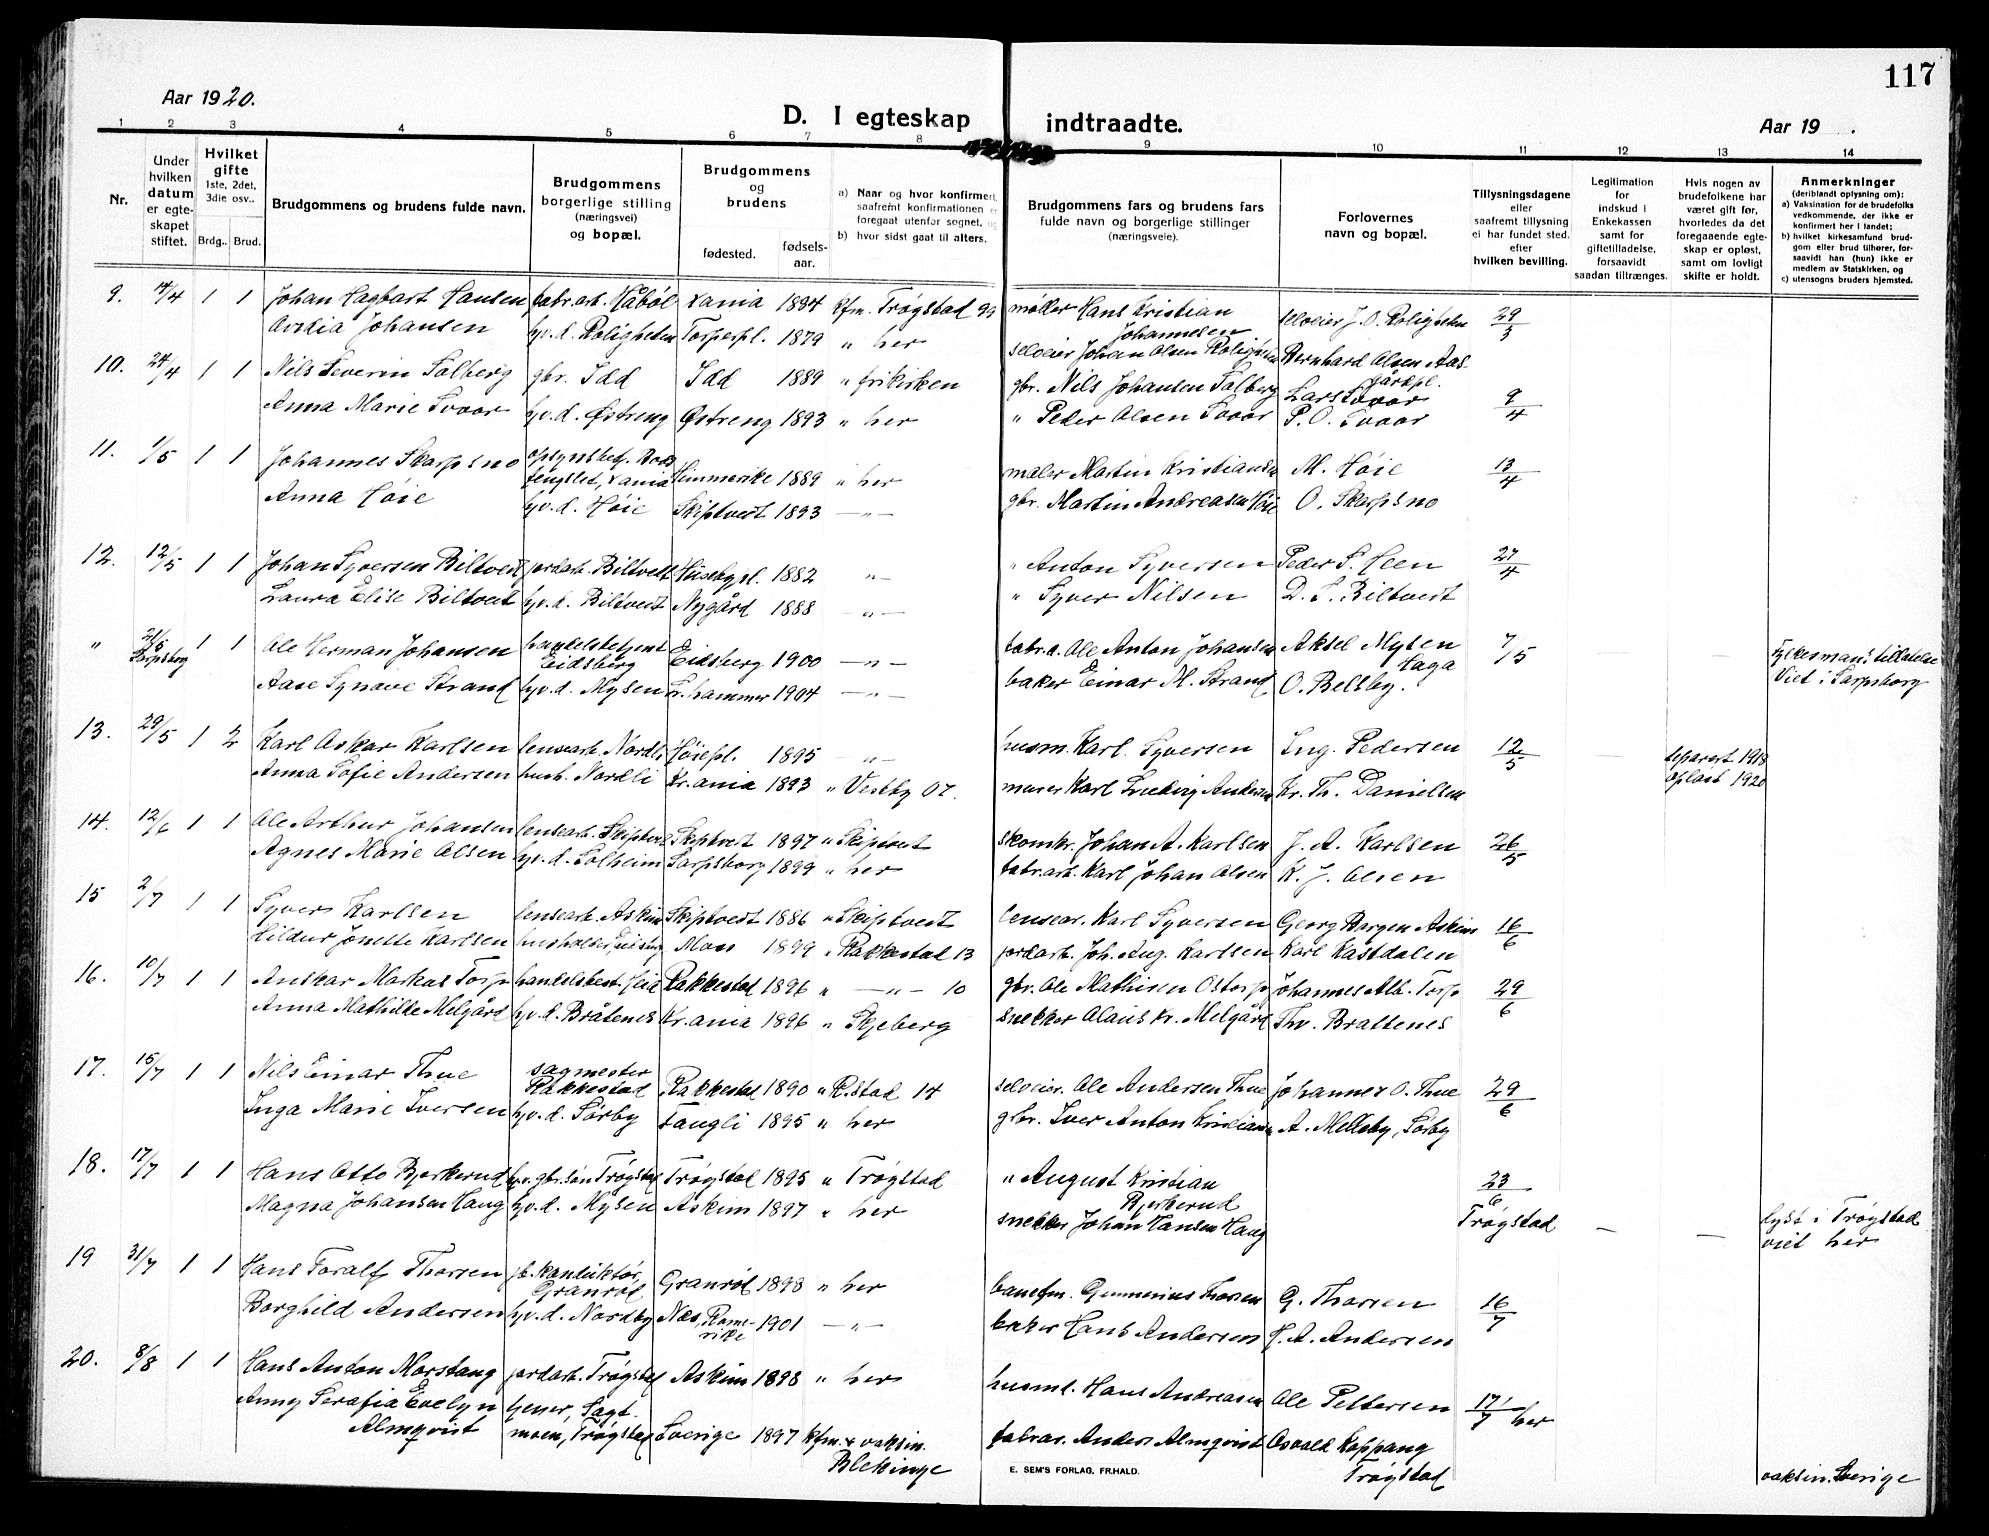 117
Aar 1920.
D. I egteskap indtraadte.
Aar 19 .
1 2 3 4 5 6 7 8 9 10 11 12 13 14
Nr.
Under hvilken datum er egteskapet stiftet.
Hvilket gifte 1ste, 2det, 3die osv..
Brdg.. Brud.
Brudgommens og brudens fulde navn.
Brudgommens borgerlige stilling (næringsvei) og bopæl.
Brudgommens og brudens
fødested. fødsels-aar.
a) Naar og hvor konfirmert, saafremt konfirmationen er foregaat utenfor sognet, og
b) hvor sidst gaat til alters.
Brudgommens fars og brudens fars fulde navn og borgerlige stillinger (næringsveie).
Forlovernes navn og bopæl.
Tillysningsdagene eller saafremt tillysning ei har fundet sted, efter hvilken bevilling.
Legitimation for indskud i Enkekassen samt for giftetilladelse, forsaavidt saadan tiltrænges.
Hvis nogen av brudefolkene har været gift før, hvorledes da det foregaaende egteskap er opløst, samt om lovligt skifte er holdt.
Anmerkninger (deriblandt oplysning om):
a) Vaksination for de brudefolks vedkommende, der ikke er konfirmert her i landet;
b) hvilket kirkesamfund brudgom eller brud tilhører, forsaavidt han (hun) ikke er medlem av Statskirken, og
c) utensogns bruders hjemsted.
9. 4/4 1 1 Johan Hagbart Hansen fabr.arb. Haböl Xania 1894 kfm. Trøgstad 99 møller Hans Kristian Johannesen selveier J. O. Roligheten 29/3
Johansen hv.d. Roligheten Torpepl. 1879 " her selveier Johan Olsen Roligheten Bernhard Olsen Aasgårdpl.
10. 24/4 1 1 Nils Severin Solberg gbr. Idd Idd 1889 " frikirken gbr. Nils Johansen Solberg Lars Svoor 9/4
Anna Marie Svoor hv.d. Østreng Østreng 1893 " her " Peder Olsen Svoor P. O. Svoor
11. 1/5 1 1 Johannes Skarpsno opsynsbet. Bodsfengslet, Xania Himmerike 1889 " her maler Martin Kristiansen M. Høie 13/4
Anna Høie hv.d. Høie Skiptvedt 1893 — " — gbr. Martin Andreasen Høie O. Skarpsno
12. 12/5 1 1 Johan Syversen Biltvedt jordarb. Biltvedt Husebypl. 1882 " — " Anton Syversen Peder S. Heen 27/4
Laura Elise Biltvedt hv.d. Biltvedt Nygård 1888 " — " Syver Nilsen D. S. Biltvedt
" 21/5 Sarpsborg 1 1 Ole Herman Johansen handelsbetjent Eidsberg Eidsberg 1900 — " — fabr.a. Ole Anton Johansen Aksel Mysen Haga 7/5 Fylkesman's tillatelse
Aase Synøve Strand hv.d. Mysen Lr.hammer 1904 — " — baker Einar M. Strand O. Belsby. Viet i Sarpsborg
13. 29/5 1 2 Karl Oskar Karlsen lensearb. Nordli Høiepl. 1895 — " — husm. Karl Syversen Ing. Pedersen 12/5 — separert 1918
Anna Sofie Andersen hush. Nordli Kr.ania 1893 " Vestby 07. murer Karl Ludvig Andersen Kr. Th. Danielsen opløst 1920
14. 12/6 1 1 Ole Arthur Johansen lensearb. Skiptvedt Skiptvedt 1897 " Skiptvedt skomkr. Johan A. Karlsen J. A. Karlsen 26/5
Agnes Marie Olsen hv.d. Solheim Sarpsborg 1899 " her fabr.arb. Karl Johan Olsen K. J. Olsen
15 2/7 1 1 Syver Karlsen lensearb. Askim Skiptvedt 1886 " Skiptvedt lensear. Karl Syversen Georg Bergen Askim 16/6
Hildur Jonette Karlsen Moss 1899 " Rakkestad 13 jordarb. Joh. Aug. Karlsen Karl Kastdalen
16. 10/7 1 1 Anskar Markus Torp handelsbest. Rakkestad 1896 " — " — 10 gbr. Ole Mathisen Ostorp Johannes Alb. Torp 29/6
Anna Mathilde Melgård hv.d. Bråtenes Kr.ania 1896 " Skjeberg snekker Olaus Kr. Melgård Th. Brattenes
17. 15/7 1 1 Nils Einar Thue sagmester Rakkestad Rakkestad 1890 " R.stad 14 selveier. Ole Andersen Thue Johannes O. Thue 29/6
Inga Marie Iversen hv.d. Sørby Fangli 1895 " her gbr. Iver Anton Kristiansen A. Melleby, Sørby
18. 17/7 1 1 Hans Otto Bjerkerud hv. gbr.søn Trøgstad Trøgstad 1895 " Trøgstad " August Kristian Bjerkerud 23/6 Trøgstad — — lyst i Trøgstad
Magna Johansen Haug hv.d. Mysen Askim 1897 " her snekker Johan Hansen Haug viet her
19 31/7 1 1 Hans Toralf Thorsen jb. konduktør, Granrød Granrød 1898 " her banefm. Gunnerius Thorsen G. Thorsen 16/7
Borghild Andersen hv.d. Nordby Næs, Romerike 1901 — " — baker Hans Andersen H. A. Andersen
20. 8/8 1 1 Hans Anton Morstang jordarb. Trøgstad Askim 1898 " her husml. Hans Andreasen Ole Pettersen 17/7 her
Anny Serafia Evelyn Almqvist tjener, Sagtmoen, Trøgstad Sverige 1897 kfm. & vaksin. Blekinge fabrar. Anders Almqvist Osvald Koppang Trøgstad vaksin. Sverige
E. SEM'S FORLAG, FR.HALD.